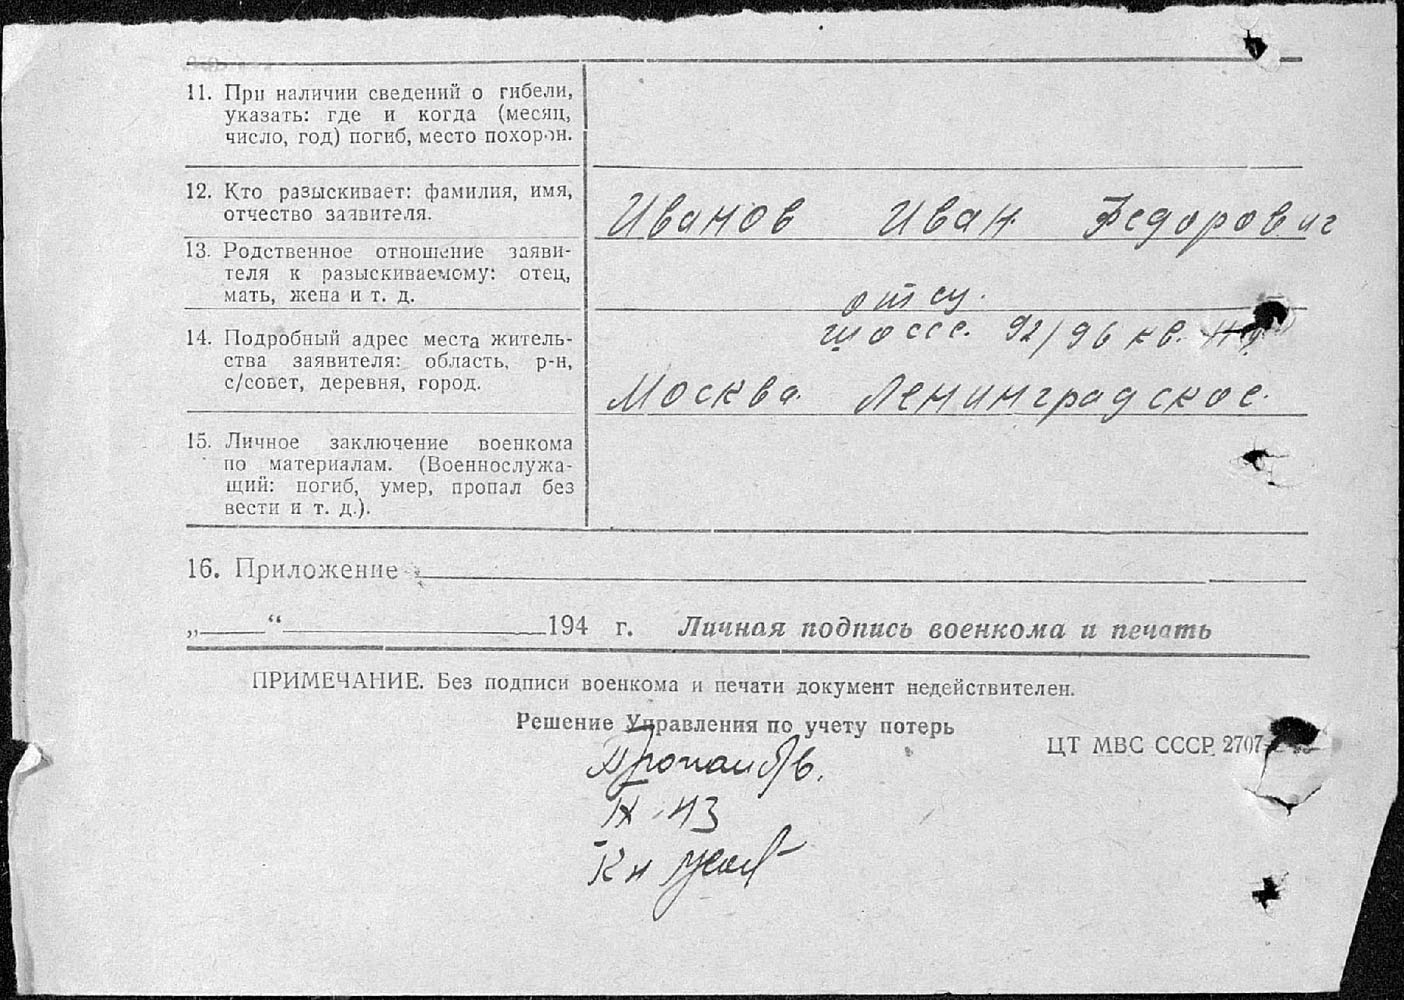 11. При наличии сведений о гибели,
указать: где и когда (месяц,
число, год) погиб, место похорон.
12. Кто разыскивает: фамилия, имя,
отчество заявителя.
Иванов Иван Федорович
13. Родственное отношение заяви-
теля к разыскиваемому: отец,
мать, жена и т. д.
отец.
14. Подробный адрес места житель-
ства заявителя: область, р-н,
с/совет, деревня, город.
шоссе. 92/96 кв.
Москва Ленинградское.
15. Личное заключение военкома
по материалам. (Военнослужа-
щий: погиб, умер, пропал без
вести и т. д.).
16. Приложение
„ “ 194 г. Личная подпись военкома и печать
ПРИМЕЧАНИЕ. Без подписи военкома и печати документ недействителен.
Решение Управления по учету потерь
ЦТ МВС СССР 2707
Пропал б/в.